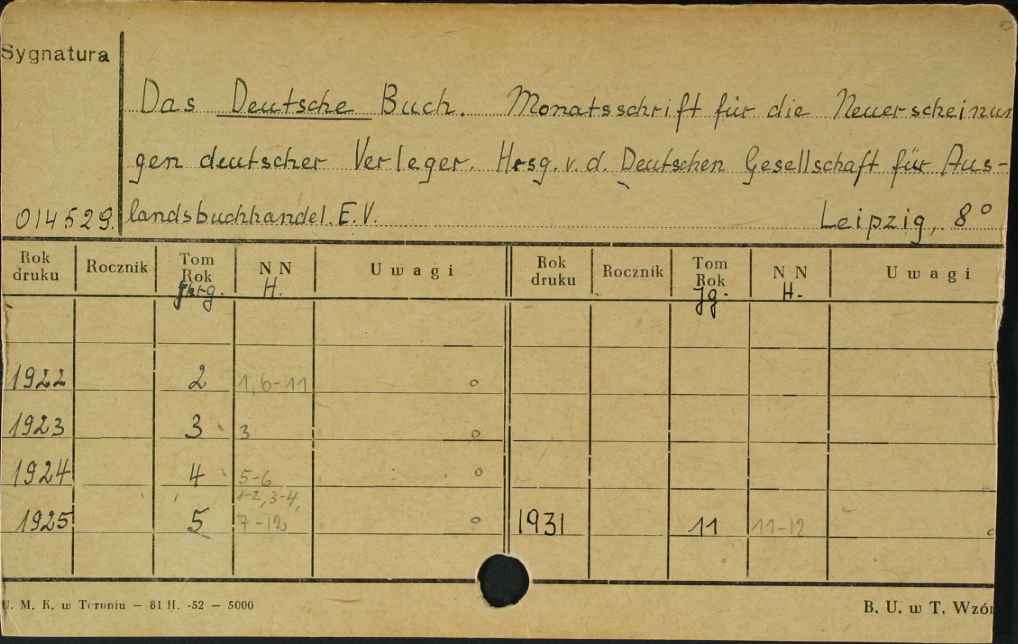 Sygnatura
Das Deutsche Buch. Monatsschrift für die Neuerscheinun
gen deutscher Verleger. Hrsg. v. d. Deutschen Gesellschaft für Aus-
014529 landsbuchhandel. E.V. Leipzig, 8°
Rok druku Rocznik Tom Rok Jhrg. N N H. Uwagi Rok druku Rocznik Tom Rok Jg. N N H. Uwagi
1922 2 1,6-11 o
1923 3 3 o
1924 4 5-6 o
1-2, 3-4,
1925 5 7-12 o 1931 11 11-12
U. M. K. w Toruniu – 81 H. -52 – 5000 B. U. w T. Wzór